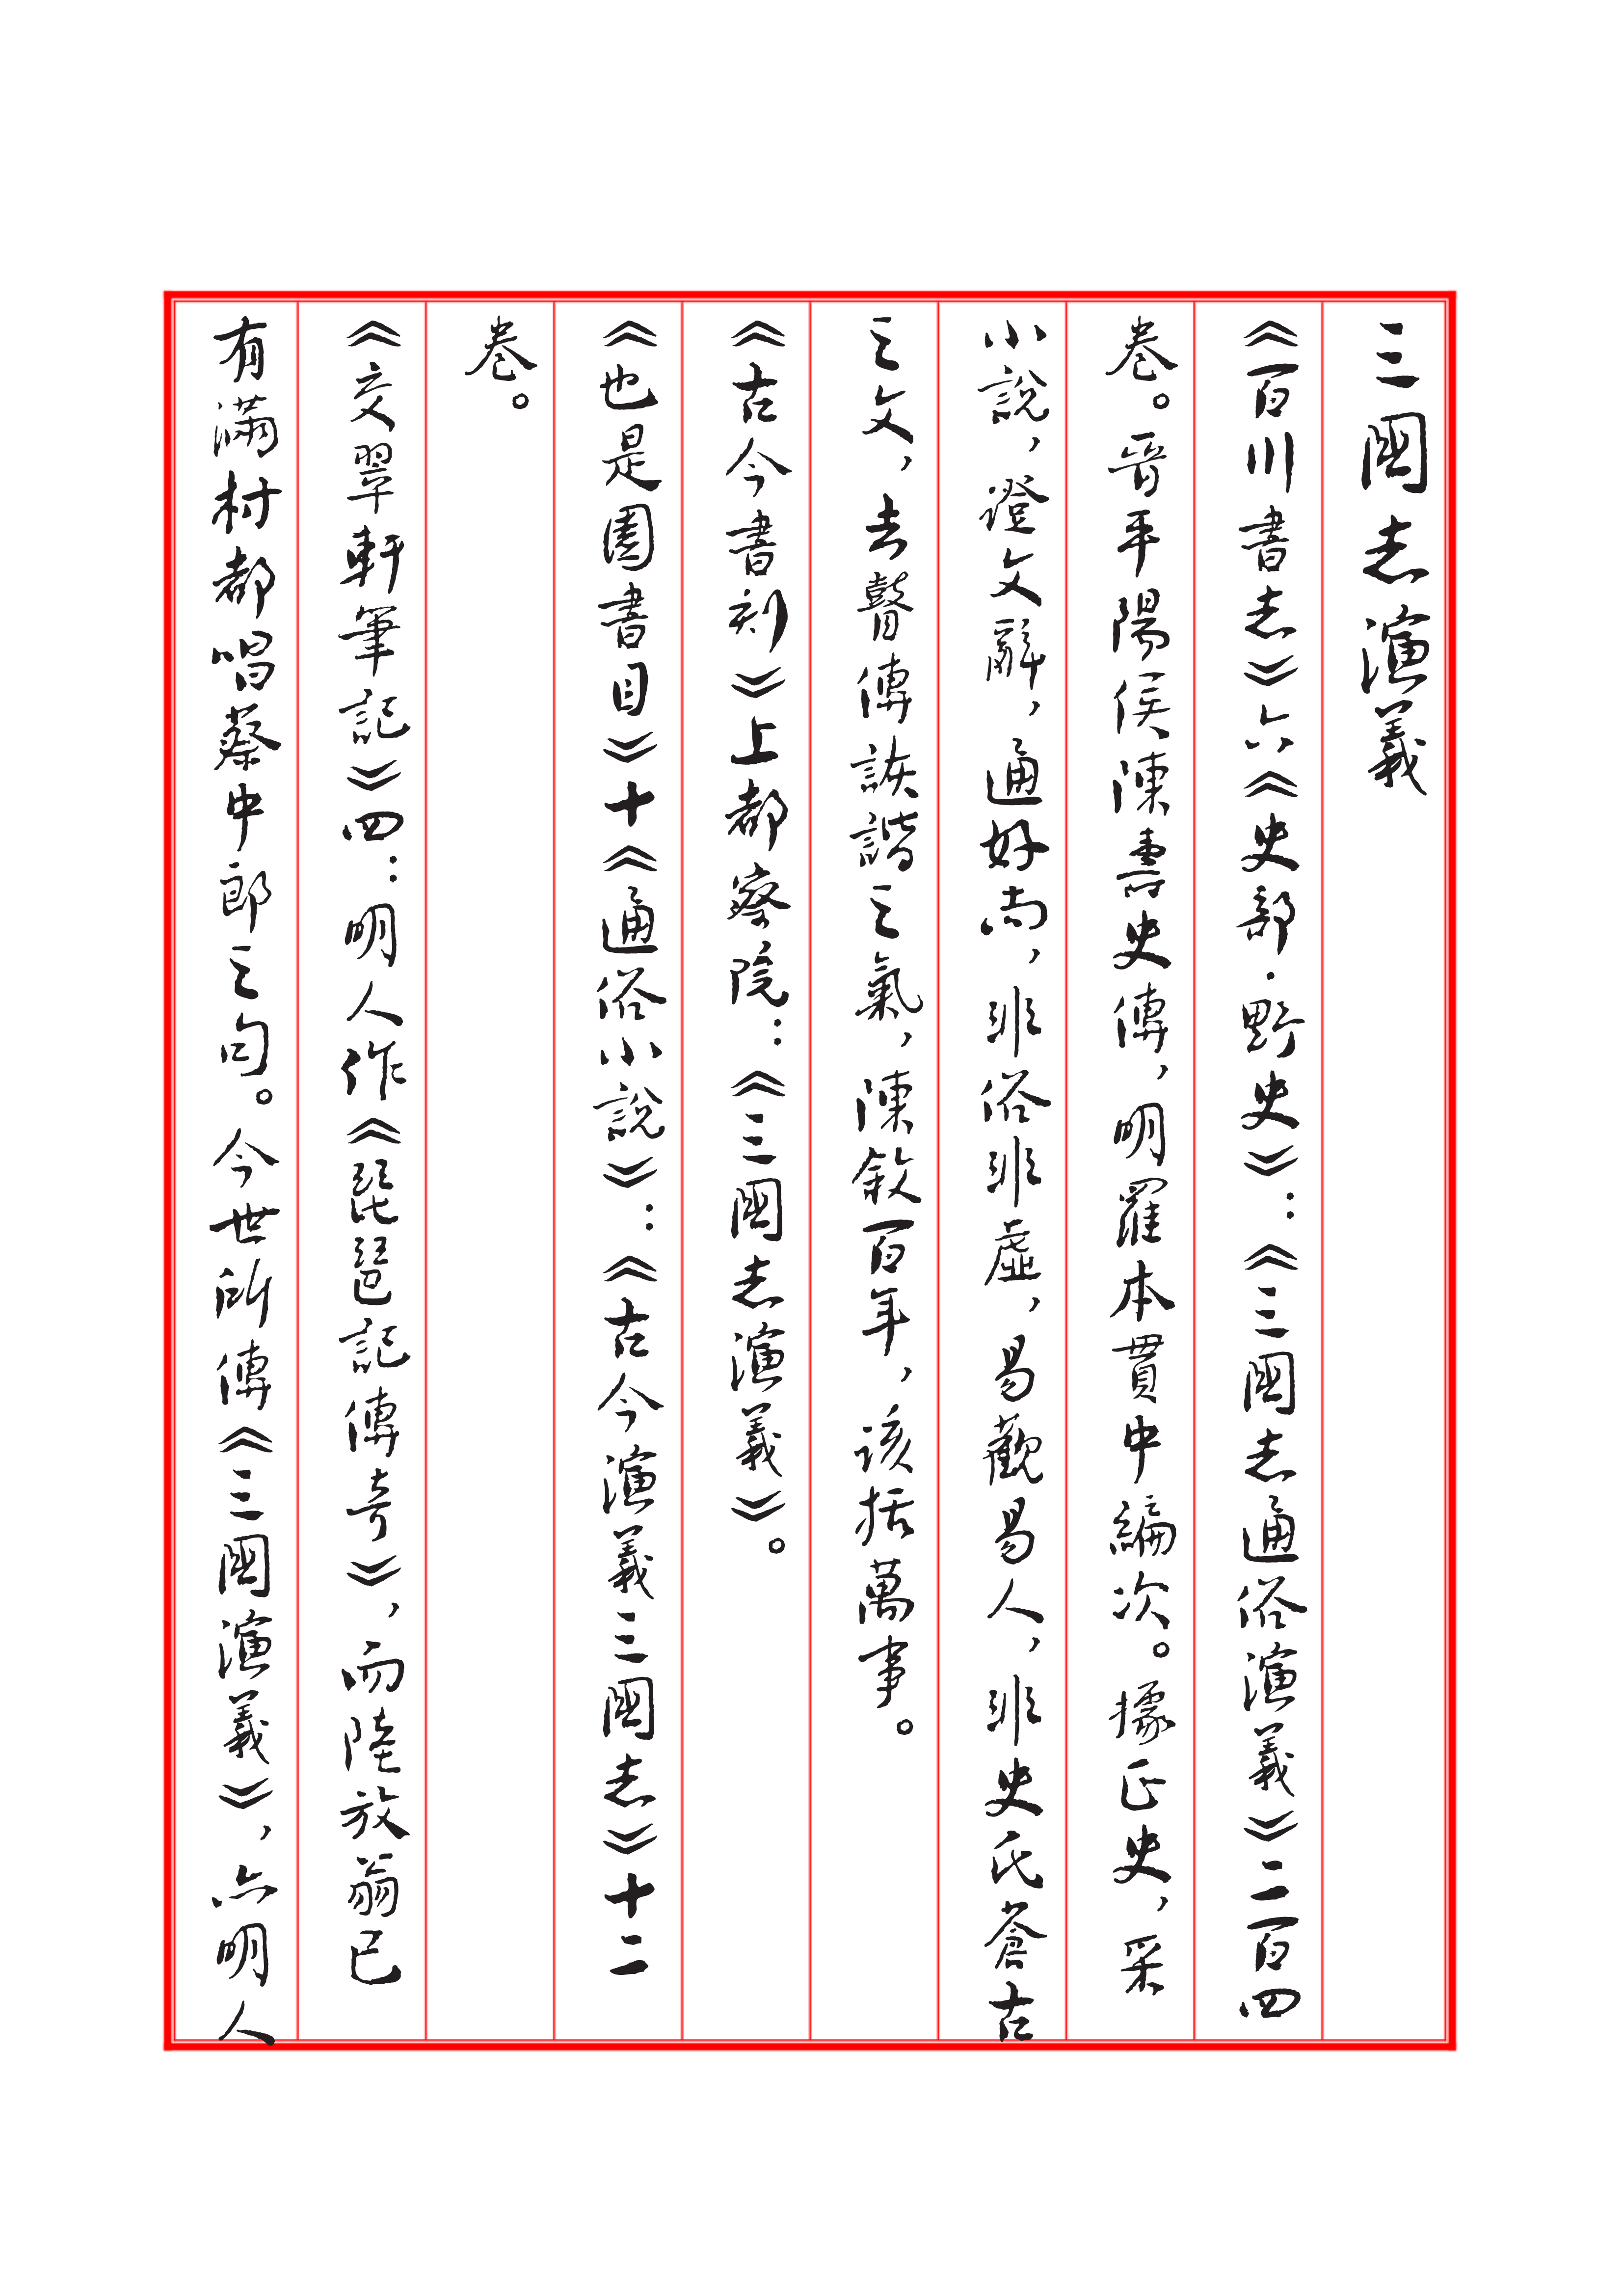 三國志演義
《百川書志》六《史部·野史》：《三國志通俗演義》二百四
卷。晉平陽侯陳壽史傳，明羅本貫中編次。據正史，采
小說，證文辭，通好尚，非俗非虛，易觀易人，非史氏蒼古
之文，去瞽傳詼諧之氣，陳敘百年，該括萬事。
《古今書刻》上都察院：《三國志演義》。
《也是園書目》十《通俗小說》：《古今演義三國志》十二
卷。
《交翠軒筆記》四：明人作《琵琶記傳奇》，而陸放翁已
有滿村都唱蔡中郎之句。今世所傳《三國演義》，亦明人